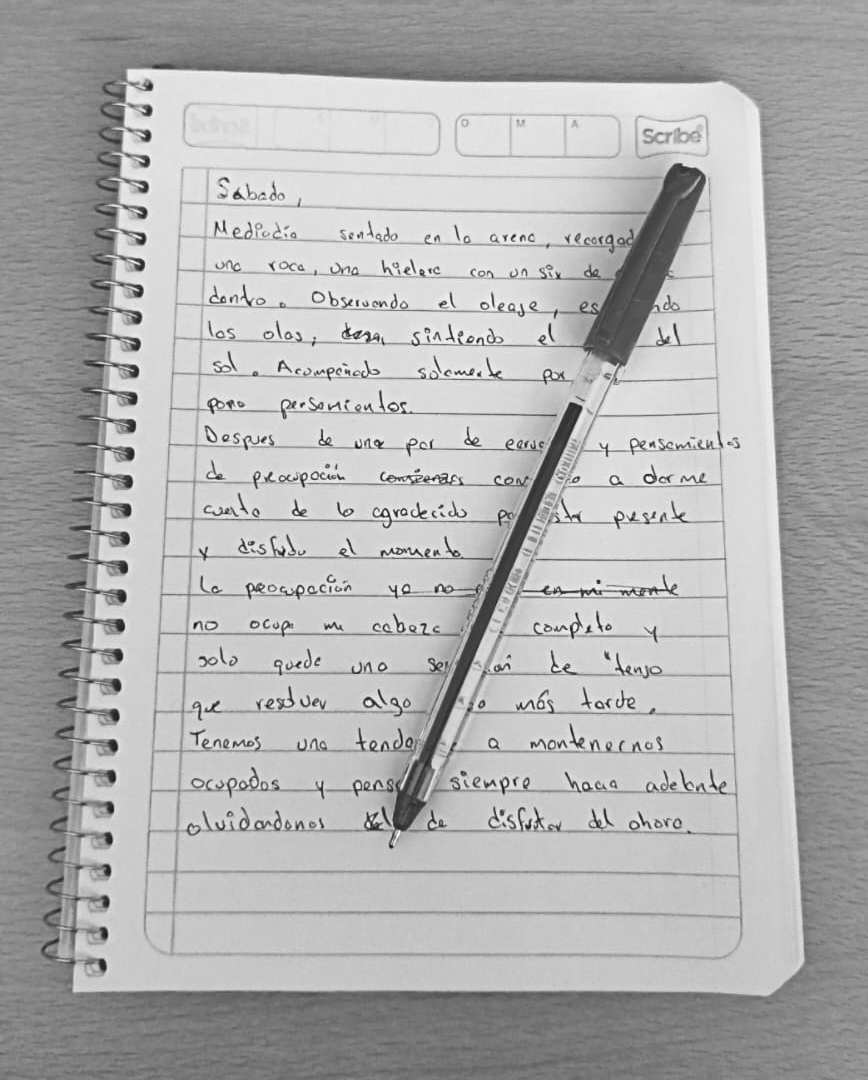 D M A Scribe
Sábado,
Mediodía sentado en la arena, recargad
una roca, una hielera con un six de
dentro. Observando el oleaje, es ndo
las olas, sintiendo el del
sol. Acompañado solamente por
pensamientos.
Despues de una par de y pensamientos
de preocupación comienzas con o a darme
cuenta de lo agradecido po star presente
y disfruto el momento.
La preocupación ya no en mi mente
no ocupa mi cabeza completo y
solo queda una sen ón de "tengo
que resolver algo go más tarde.
Tenemos una tende a mantenernos
ocupados y pensa siempre hacia adelante
olvidandonos del de disfrutar del ahora.